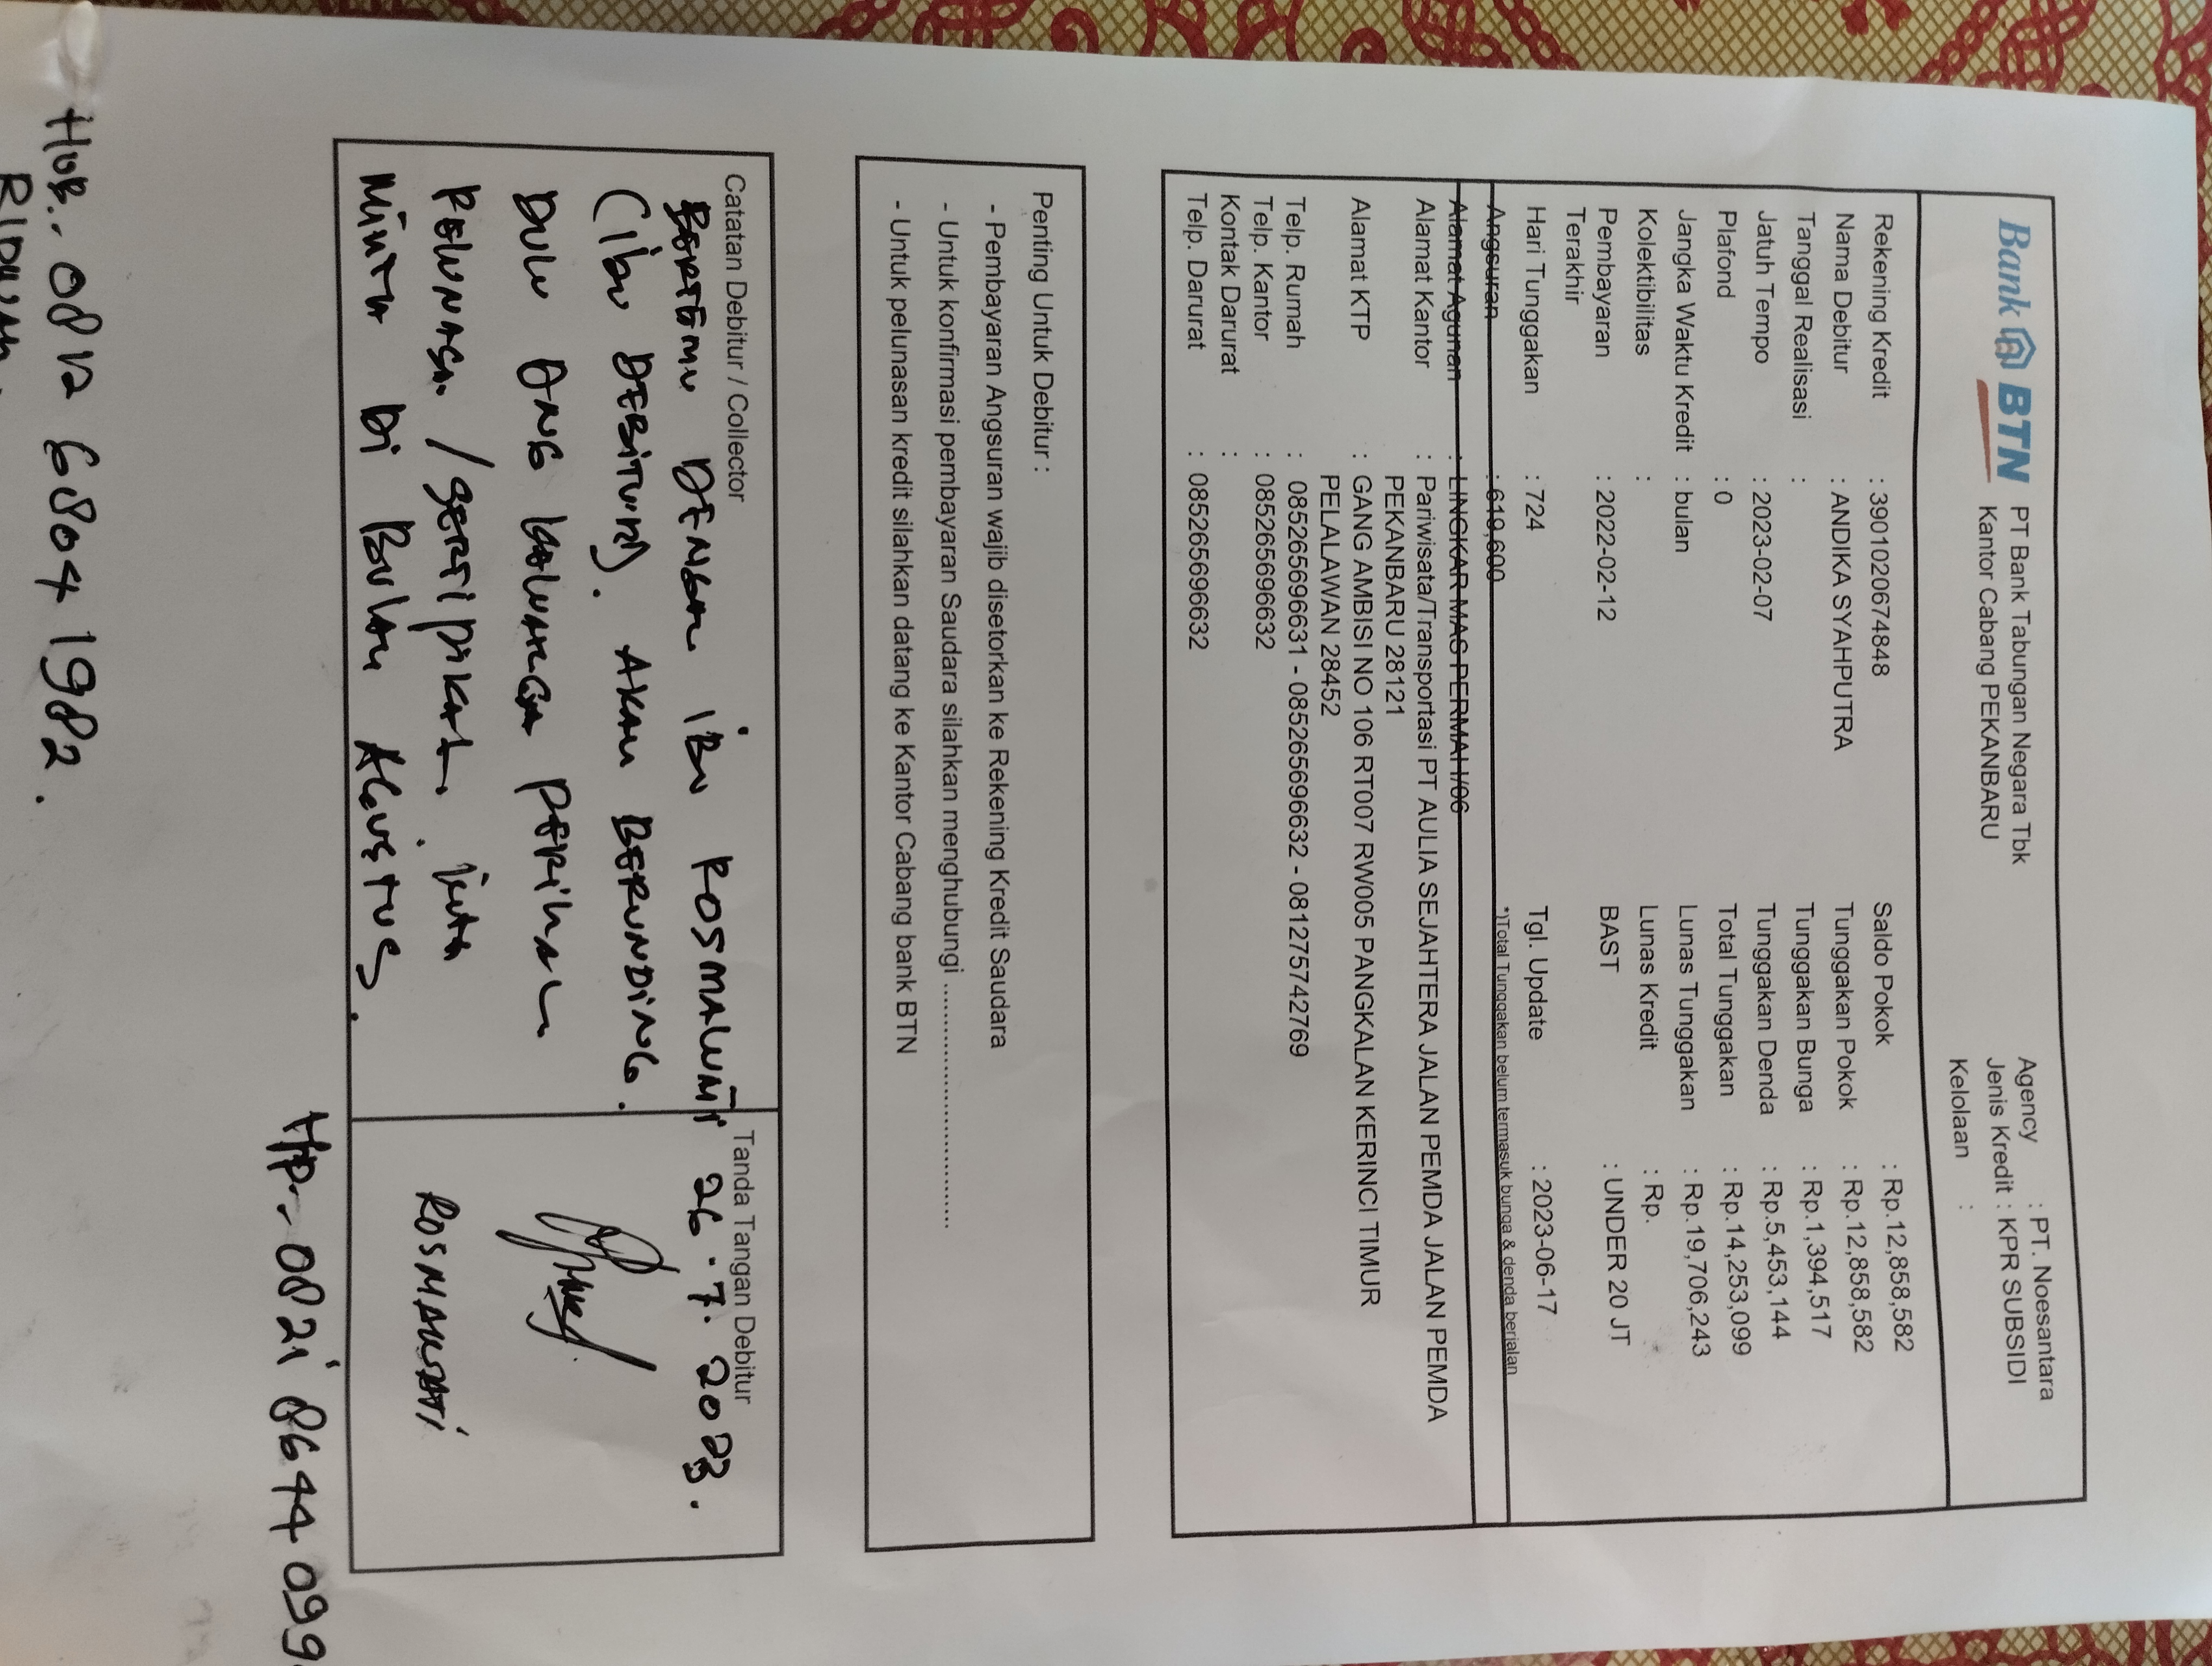 Bank BTN
PT Bank Tabungan Negara Tbk
Kantor Cabang PEKANBARU
Agency : PT. Noesantara
Jenis Kredit : KPR SUBSIDI
Kelolaan :
Rekening Kredit : 3901020674848
Nama Debitur : ANDIKA SYAHPUTRA
Tanggal Realisasi :
Jatuh Tempo : 2023-02-07
Plafond : 0
Jangka Waktu Kredit : bulan
Kolektibilitas :
Pembayaran Terakhir : 2022-02-12
Hari Tunggakan : 724
Saldo Pokok : Rp.12,858,582
Tunggakan Pokok : Rp.12,858,582
Tunggakan Bunga : Rp.1,394,517
Tunggakan Denda : Rp.5,453,144
Total Tunggakan : Rp.14,253,099
Lunas Tunggakan : Rp.19,706,243
Lunas Kredit : Rp.
BAST : UNDER 20 JT
Tgl. Update : 2023-06-17
*)Total Tunggakan belum termasuk bunga & denda berjalan
Angsuran : 619,600
Alamat Agunan : LINGKAR MAS PERMAI I/06
Alamat Kantor : Pariwisata/Transportasi PT AULIA SEJAHTERA JALAN PEMDA JALAN PEMDA
PEKANBARU 28121
Alamat KTP : GANG AMBISI NO 106 RT007 RW005 PANGKALAN KERINCI TIMUR
PELALAWAN 28452
Telp. Rumah : 085265696631 - 085265696632 - 081275742769
Telp. Kantor : 085265696632
Kontak Darurat :
Telp. Darurat : 085265696632
Penting Untuk Debitur :
- Pembayaran Angsuran wajib disetorkan ke Rekening Kredit Saudara
- Untuk konfirmasi pembayaran Saudara silahkan menghubungi ....................................
- Untuk pelunasan kredit silahkan datang ke Kantor Cabang bank BTN
Catatan Debitur / Collector
BERTEMU DENGAN IBU ROSMAWATI
(IBU DEBITUR). AKAN BERUNDING.
DULU DNG KELUARGA PERIHAL
PELUNASAN / SERTIPIKAT.
MINTA DI BULAN AGUSTUS.
Tanda Tangan Debitur
26.7.2023.
ROSMAWATI
Hp. 0821 8644 099
HUB. 0812 6804 1982.
RIDWAN.